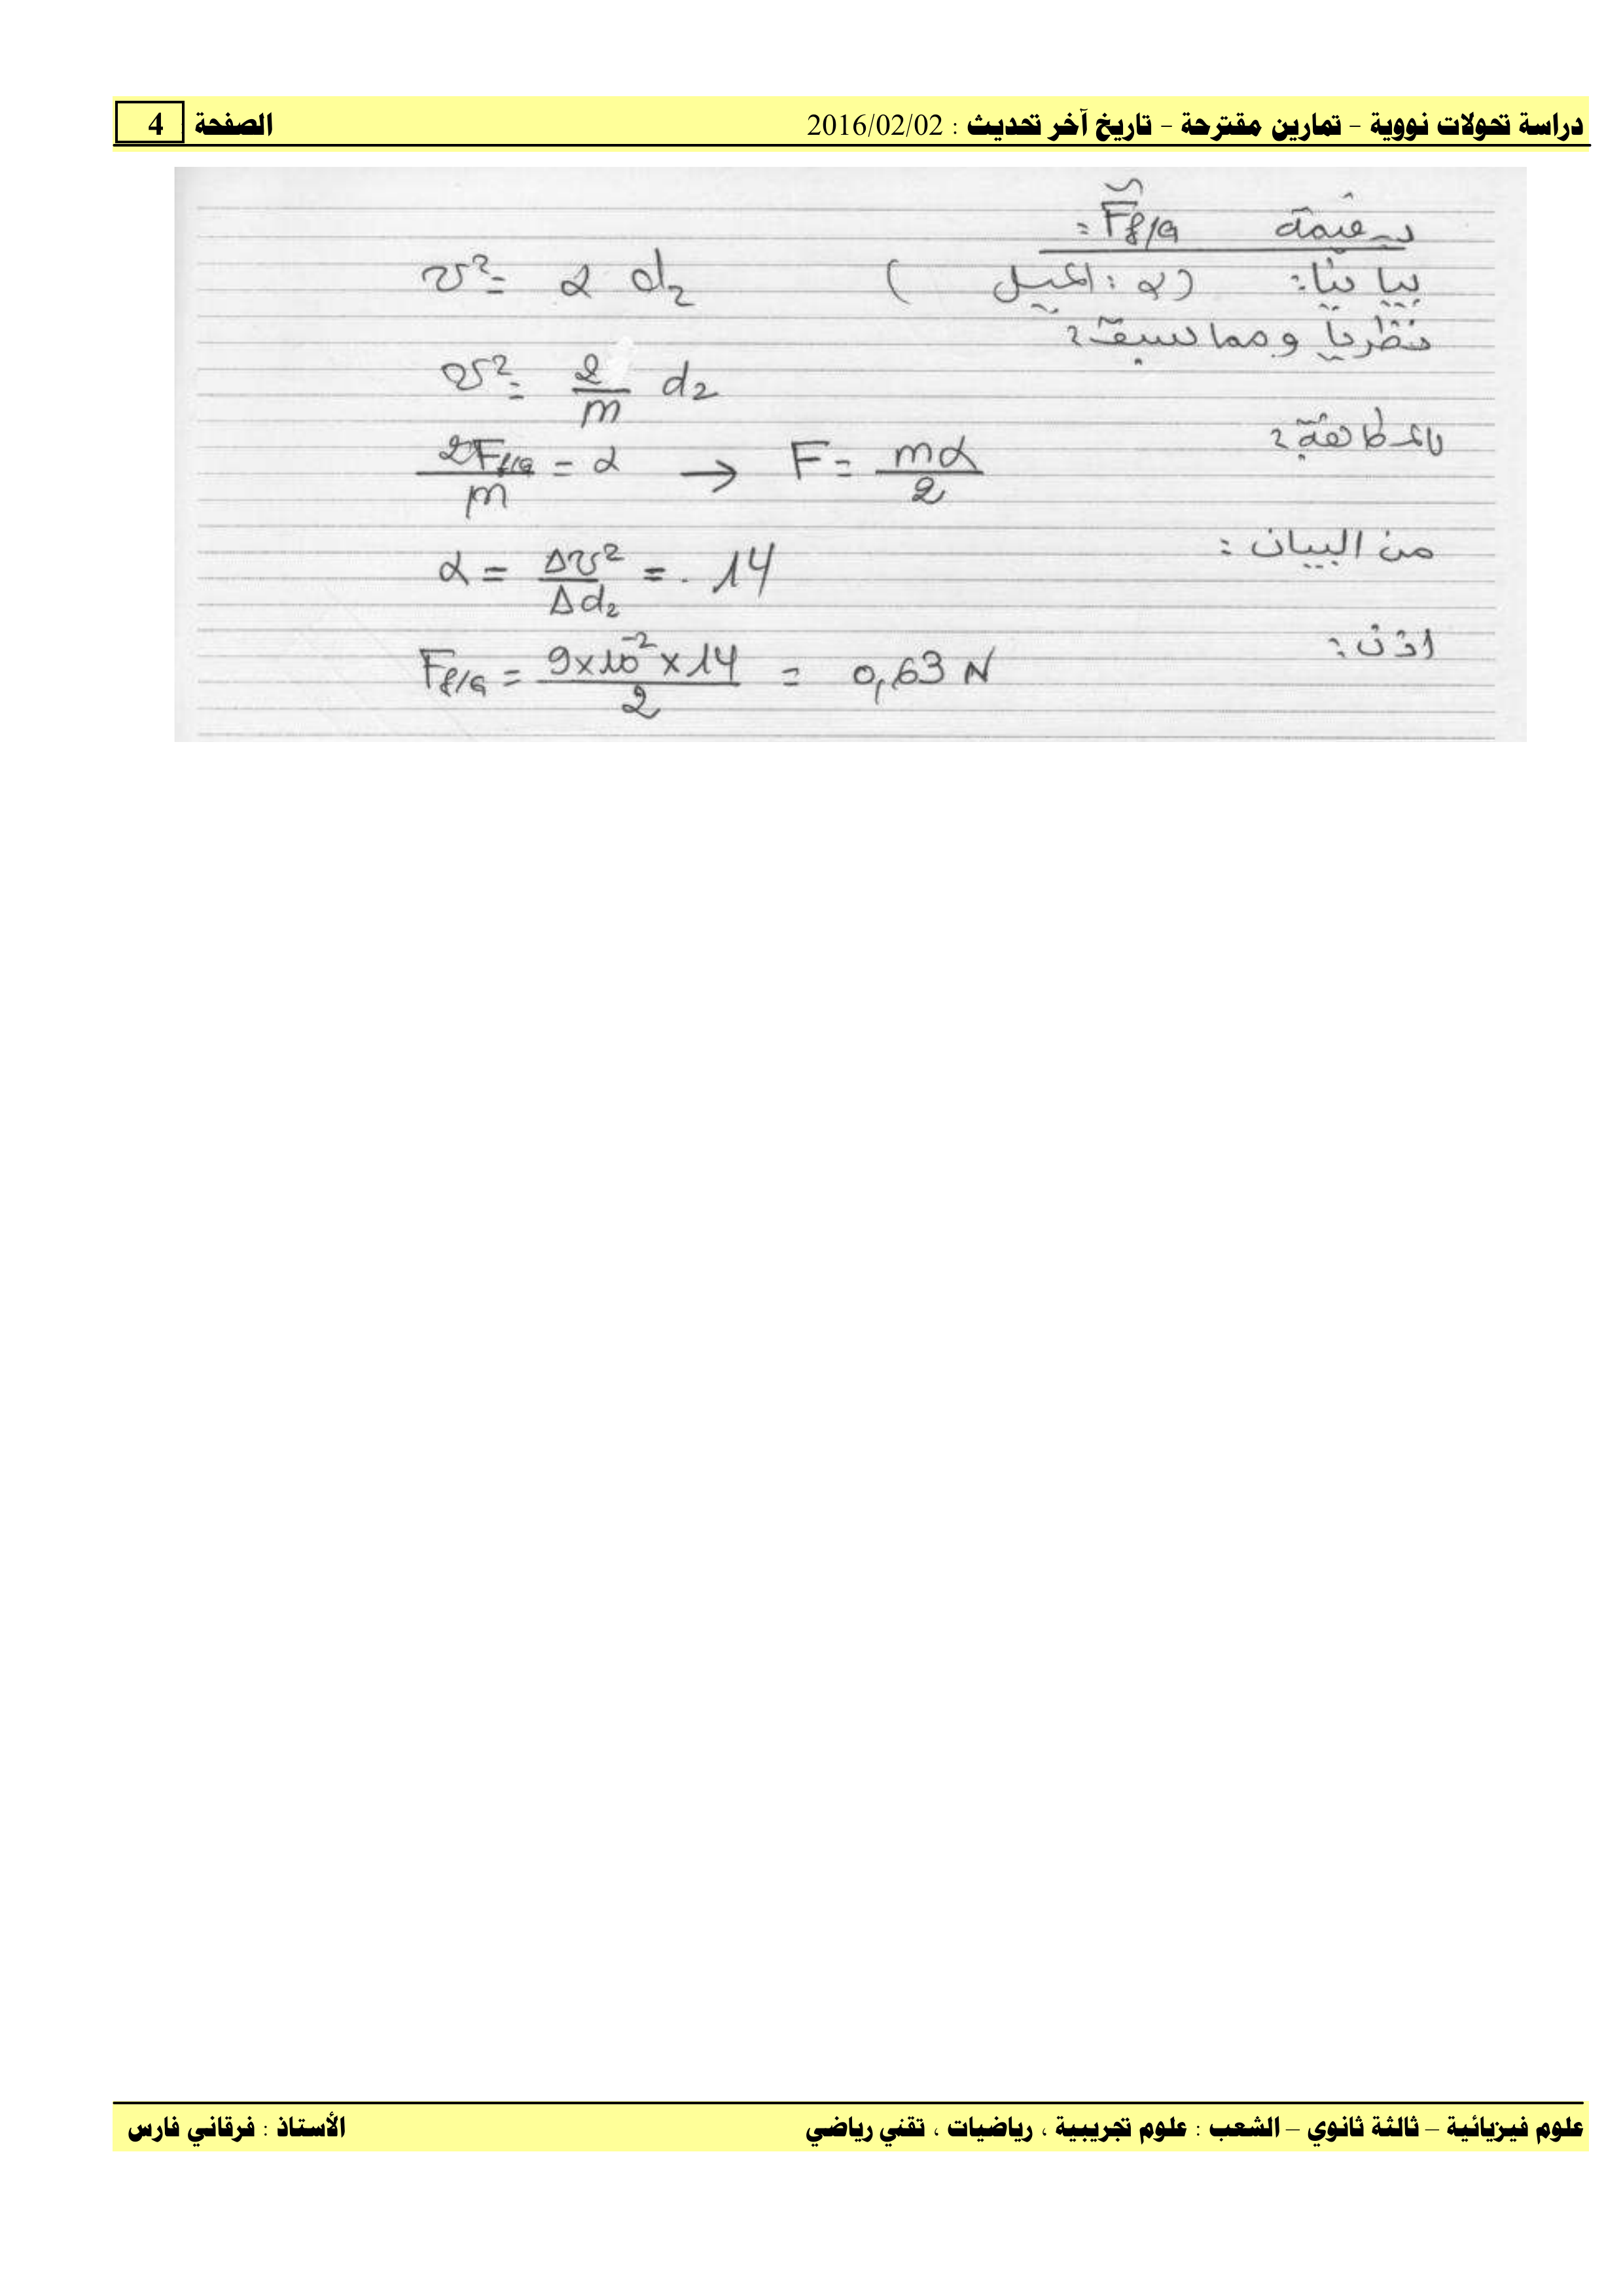 دراسة تحولات نووية - تمارين مقترحة - تاريخ آخر تحديث : 2016/02/02 الصفحة 4
د- قيمة F f/G :
بيانيا: (α : الميل) v² = α d₂
نظريا ومما سبق :
v² = 2/m d₂
بالمطابقة :
2F f/G / m = α → F = mα/2
من البيان : α = Δv²/Δd₂ = 14
اذن : F f/G = 9x10⁻² x 14 / 2 = 0,63 N
علوم فيزيائية – ثالثة ثانوي – الشعب : علوم تجريبية ، رياضيات ، تقني رياضي الأستاذ : فرقاني فارس